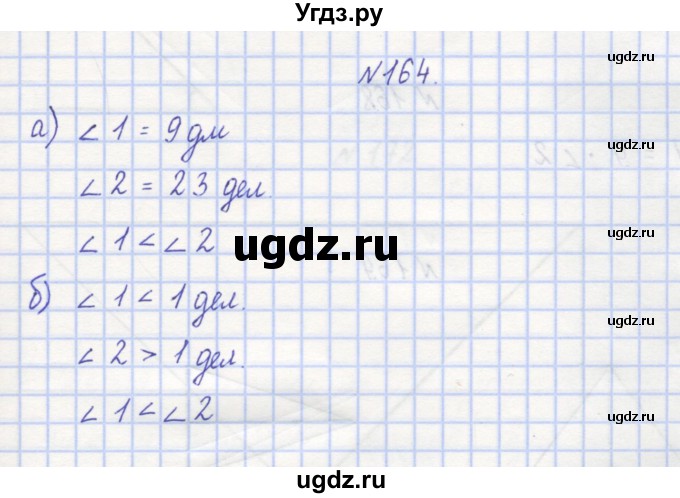 Угдз.ру
ugdz.ru
ugdz.ru
ugdz.ru
ugdz.ru
ugdz.ru
№164.
а) ∠1 = 9 дм
∠2 = 23 дел.
∠1 < ∠2
ugdz.ru
б) ∠1 < 1 дел.
∠2 > 1 дел.
∠1 < ∠2
ugdz.ru